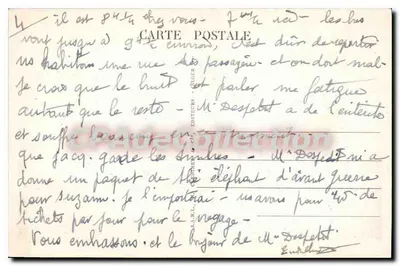 4 il est 8 h 1/4 chez vous - 7 1/4 ici - les bus
CARTE POSTALE
vont jusqu'à 9 h 1/2 environ, c'est dur de repartir
nous habitons une rue passagère et on dort mal-
Je crois que le bruit et parler me fatigue
autant que le reste - Mr Despetot a de l'entérite
et souffre
que Jacq. garde les timbres - Mr Despetot m'a
donné un paquet de thé éléphant d'avant guerre
pour Suzanne. Je l'emporterai - nous avons pour 45 de
tickets par jour pour le voyage -
Vous embrassons et le bonjour de Mr Despetot